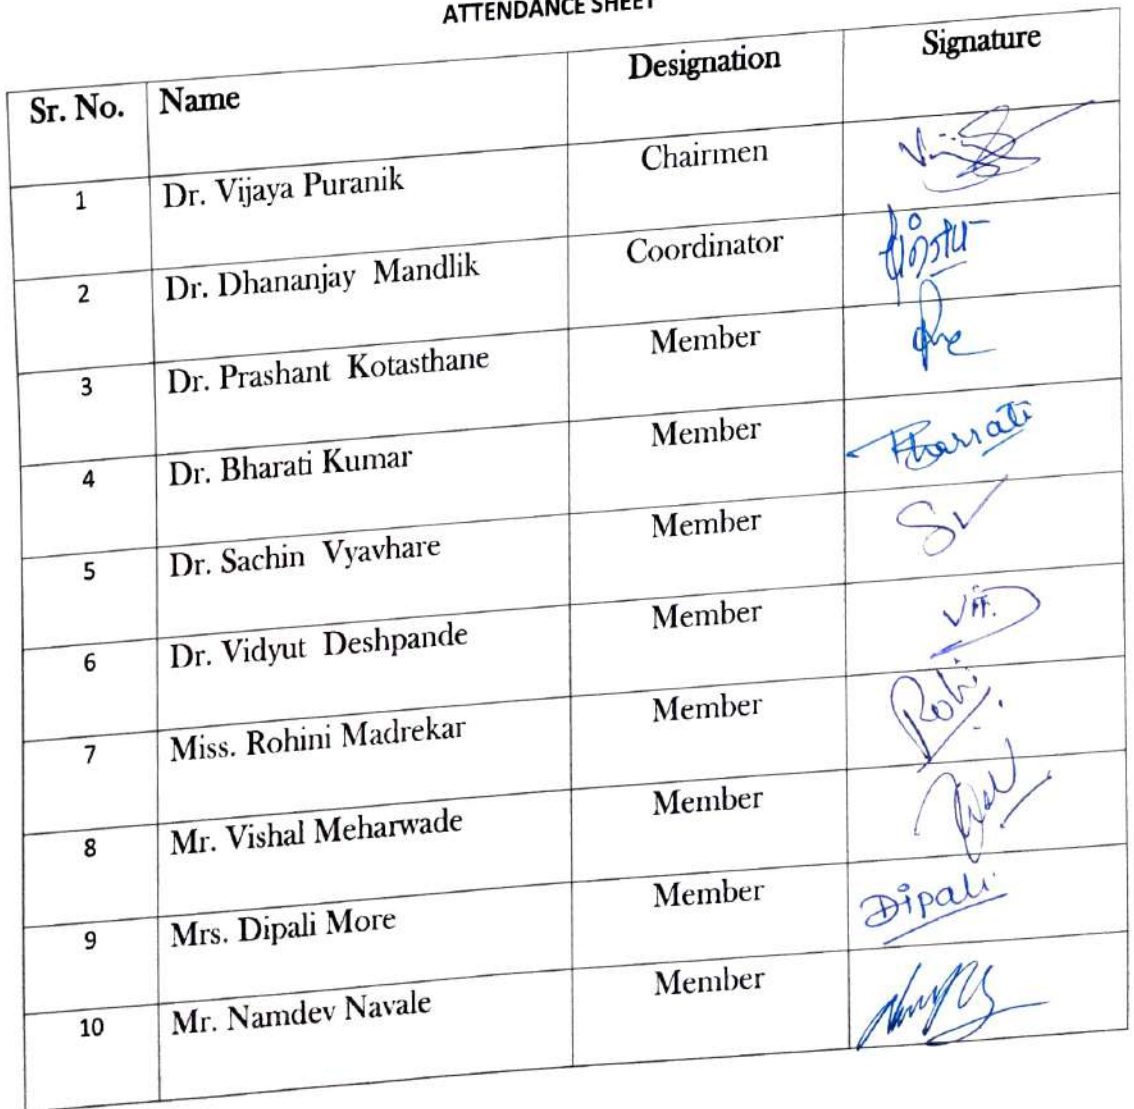 ATTENDANCE SHEET
Sr. No. Name Designation Signature
1 Dr. Vijaya Puranik Chairmen
2 Dr. Dhananjay Mandlik Coordinator
3 Dr. Prashant Kotasthane Member
4 Dr. Bharati Kumar Member Bharati
5 Dr. Sachin Vyavhare Member SV
6 Dr. Vidyut Deshpande Member
7 Miss. Rohini Madrekar Member Rohi
8 Mr. Vishal Meharwade Member
9 Mrs. Dipali More Member Dipali
10 Mr. Namdev Navale Member